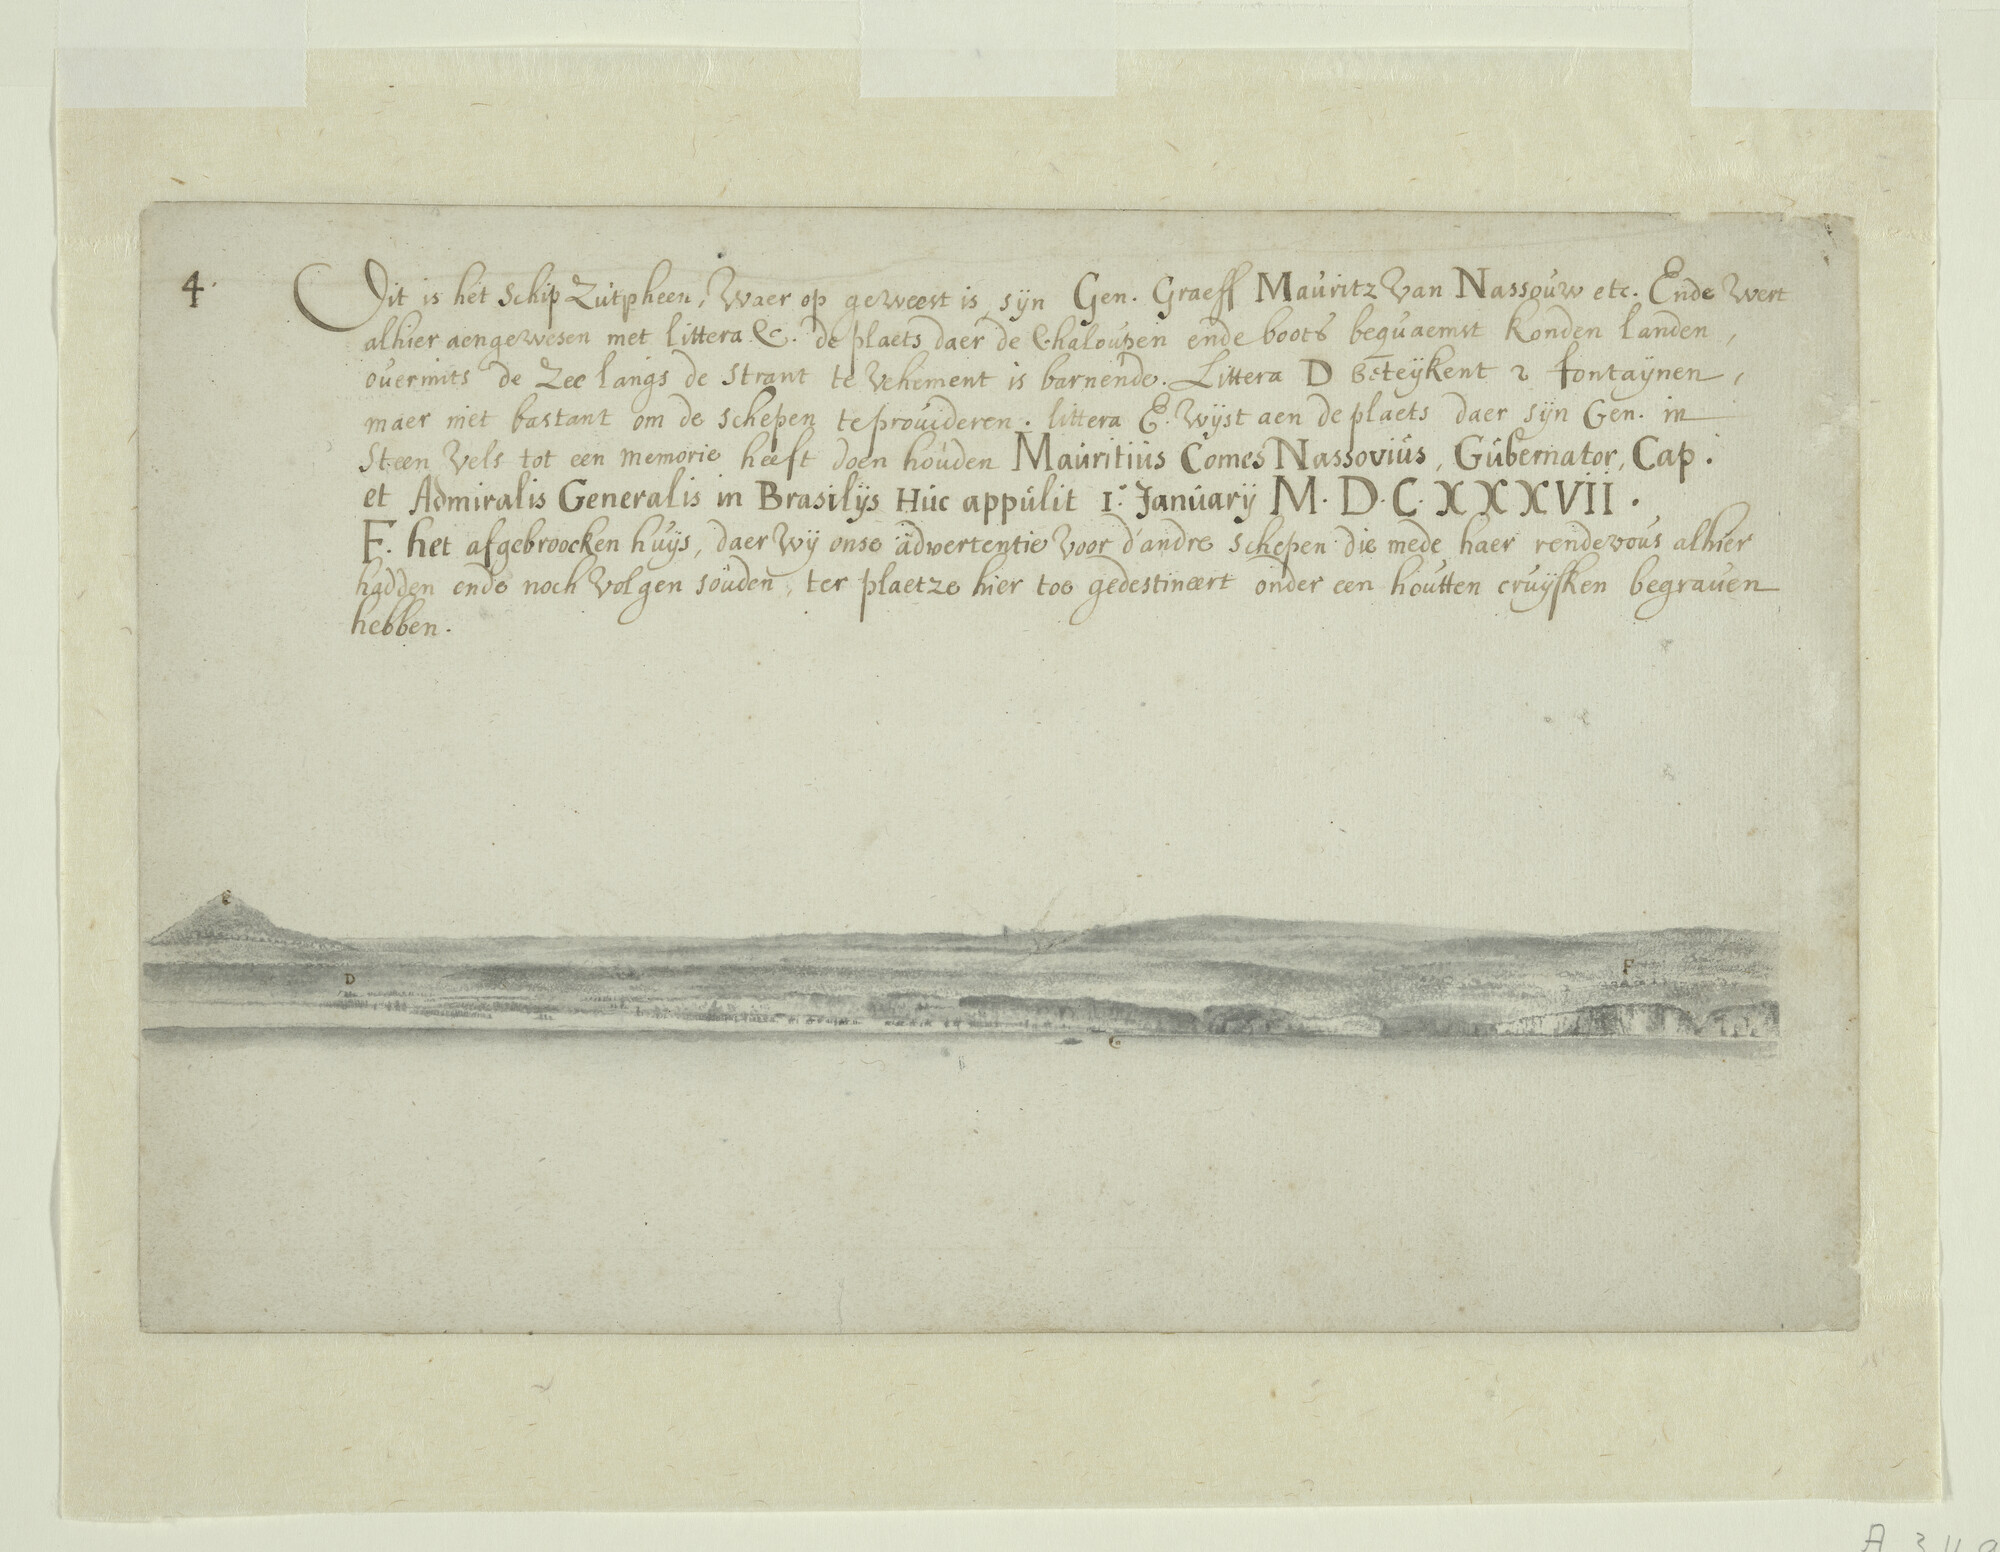 4.
Dit is het Schip Zutpheen, Waer op geweest is, sijn Gen. Graeff Mauritz Van Nassouw etc. Ende Wert
alhier aengewesen met littera C. de plaets daer de Chaloupen ende boots bequaemst konden landen,
ouermits de Zee langs de Strant te Vehement is barnende. Littera D beteijkent 2 fontaijnen,
maer niet bastant om de Schepen te prouideren. littera E. Wijst aen de plaets daer sijn Gen. in
Steen Vels tot een memorie heeft doen houden Mauritius Comes Nassovius, Gubernator, Cap:
et Admiralis Generalis in Brasilijs Huc appulit 1. Januarij M. D. C. XXXVII.
F. het afgebroocken huijs, daer Wij onse advertentie Voor d'andre Schepen die mede haer rendevous alhier
hadden ende noch Volgen souden, ter plaetze hier toe gedestineert onder een houtten cruijsken begrauen
hebben.
E
D
F
C